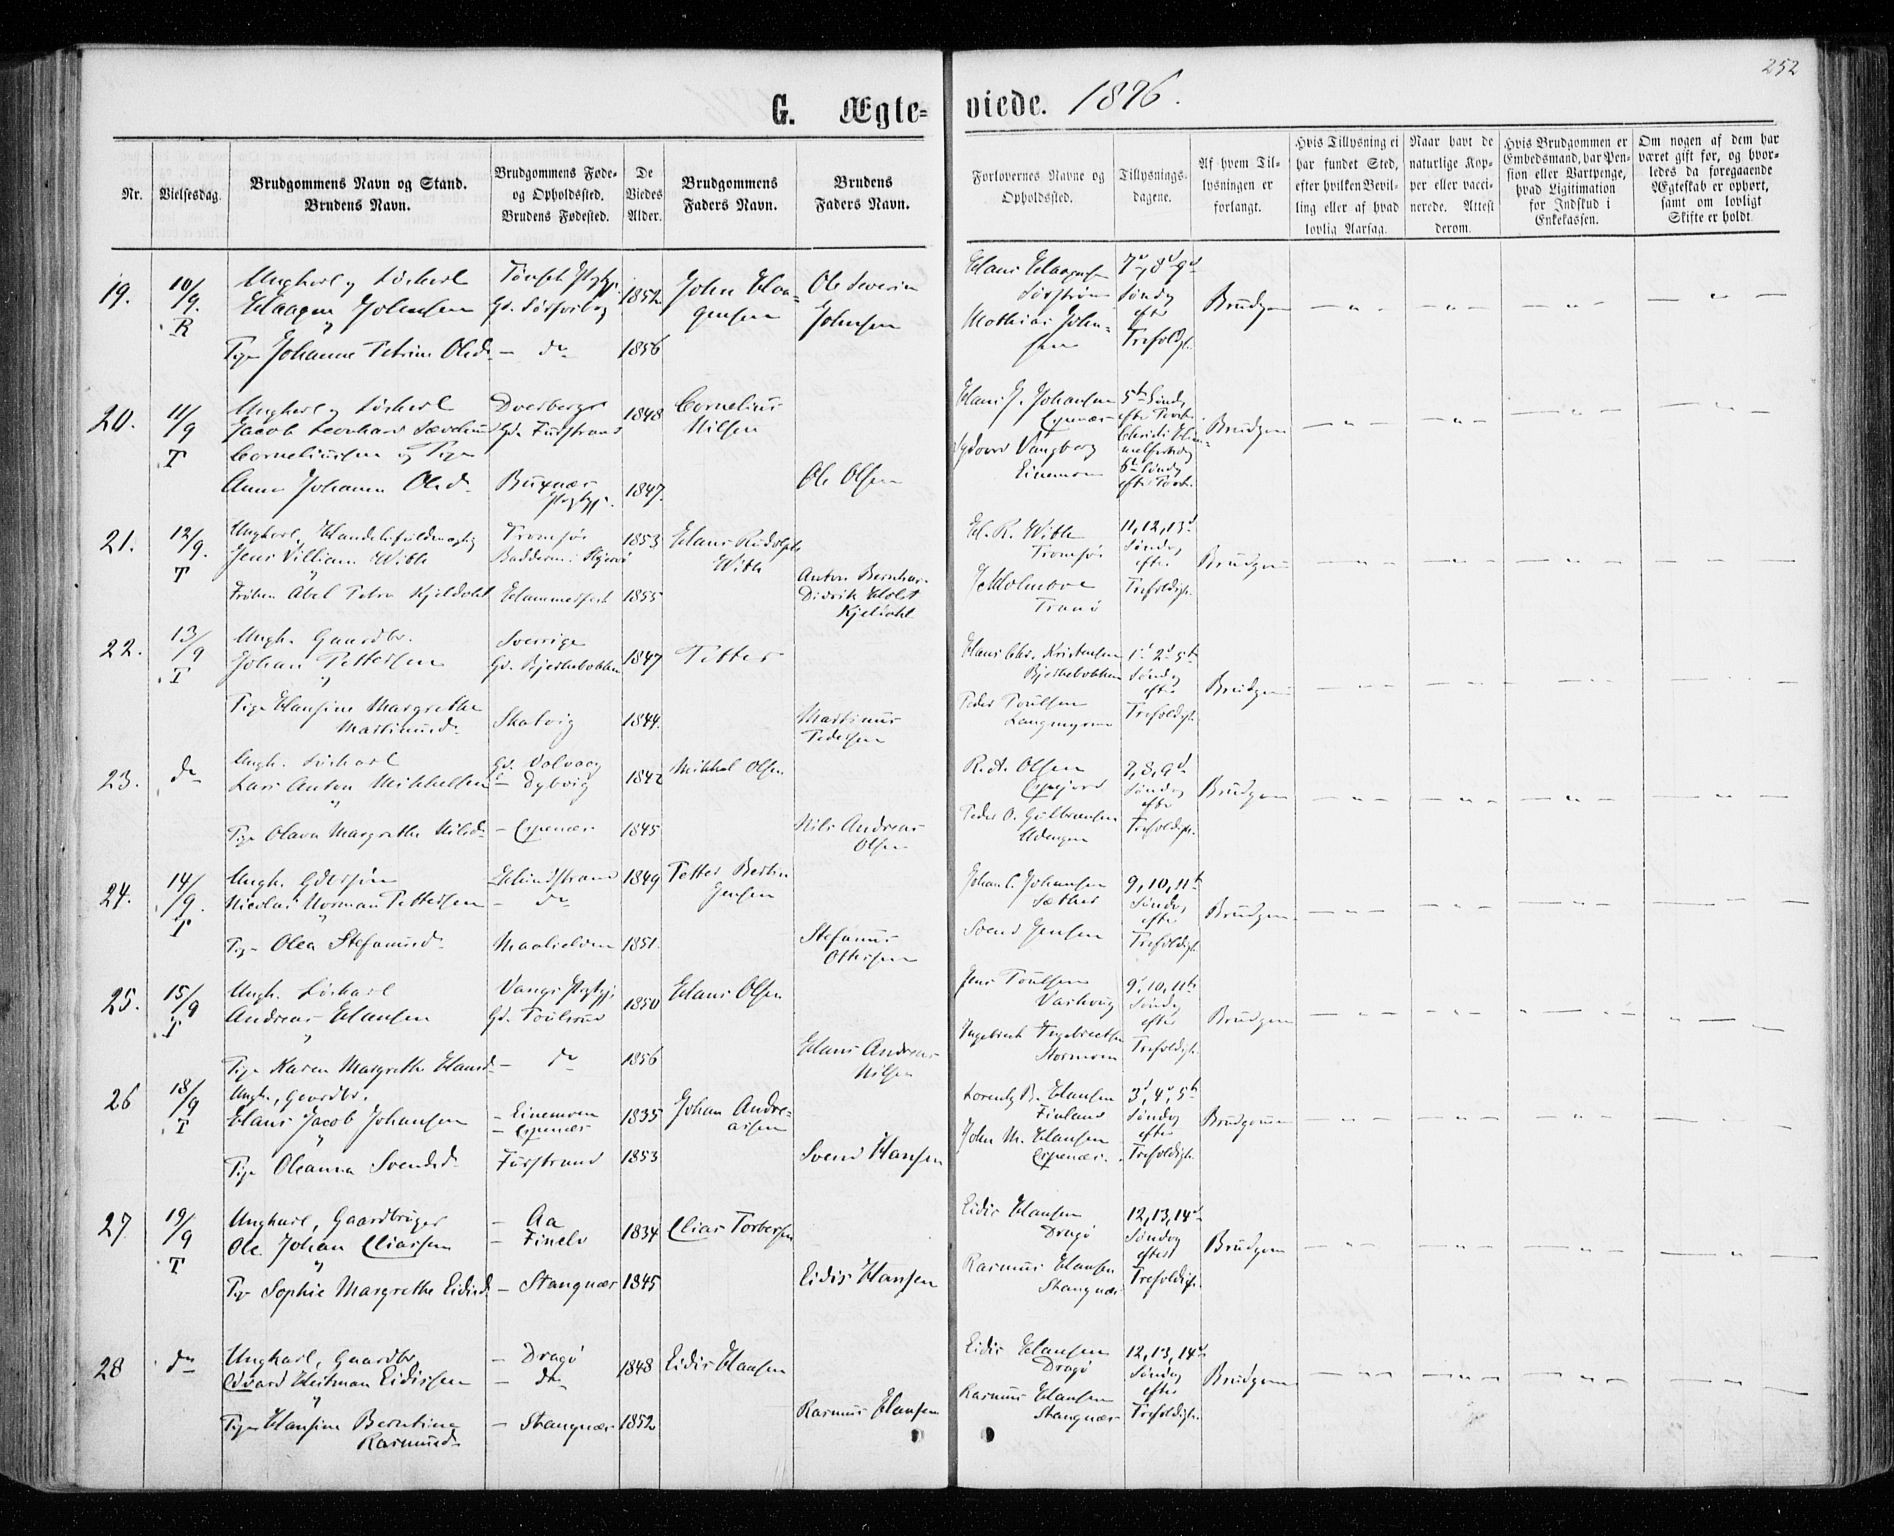 252
G. Ægteviede. 1876.
Nr.
Vielsesdag.
Brudgommens Navn og Stand.
Brudens Navn.
Brudgommens Føde-
og Opholdssted.
Brudens Fødested.
De
Viedes
Alder.
Brudgommens
Faders Navn.
Brudens
Faders Navn.
Forlovernes Navne og
Opholdssted.
Tillysnings-
dagene.
Af hvem Til-
lysningen er
forlangt.
Hvis Tillysning ei
har fundet Sted,
efter hvilken Bevil-
ling eller af hvad
lovlig Aarsag.
Naar havt de
naturlige Kop-
per eller vacci-
nerede. Attest
derom.
Hvis Brudgommen er
Embedsmand, har Pen-
sion eller Vartpenge,
hvad Ligitimation
for Indskud i
Enkekassen.
Om nogen af dem har
været gift før, og hvor-
ledes da foregaaende
Ægteskab er ophørt,
samt om lovligt
Skifte er holdt.
19. 10/9. R
Ungkarl, Løskarl
Haagen Johnsen
Pige Johanne Petrine Olsd.
do
1852
1856
John Haa-
gensen
Ole Severin
Johnsen
Hans Haagensen
Mathias John-
sen
7d, 8d, 9d
Søndag
efter
Trefoldigh.
Brudgom
20. 11/9 T
Ungkarl, Løskarl
Jacob Leonhard
Corneliussen og Pige
Anne Johanna Olsd.
Dverberg
Gd. Furstrand
Buxnæs
Prstgj.
1848
1847.
Cornelius
Nilsen
Ole Olsen
Hans J. Johansen
Espenæs
Vangberg
Einemoen
5te Sønd.
6te Søndag
Brudgom
21. 12/9. T
Ungkarl, Handelsfuldmægtig
Jens Villiam With
Frøken Abel Petra Kjeldahl
Tromsø
Hammerfest
1853
1855
Hans Rudolph
With
Anton Bernhar
Didrik Holst
Kjeldahl
H. R. With
Tromsø
J. Holmboe
Tranø
11, 12, 13d
Søndag
efter
Trefoldigh.
Brudgom
22. 13/9 T
Ungk. Gaardbr.
Johan Pettersen
Pige Hansine Margrethe
Martinusd.
Sverrige
Gd. Bjerkebakken
Skatvig
1847
1844.
Petter
Martinus
Pedersen
Hans Chr. Kristensen
Bjerkebakken
Peder Poulsen
Langmyren
1ste 2d 5te
Søndag
efter
Trefoldigh.
Brudgom
23. do
Ungk. Løskarl
Lars Anton Mikkelsen
Pige Olava Margrethe Nilsd.
Gd. Valvaag
Dybvig
Espenæs
1842
1845
Mikkel Olsen
Nils Andreas
Olsen
Olsen
Peder O. Gulbransen
7, 8, 9d
Søndag
efter
Trefoldigh.
Brudgom
24. 14/9. T
Ungk.
Nicolai Norman Pettersen
Pige Olea Stefanusd.
do
Maalselven
1849
1851.
Petter Bertin
Jensen
Stefanus
Ottesen
Johan C. Johansen
Sæther
Svend Jensen
9, 10, 11te
Søndag
efter
Trefoldigh.
Brudgom
25. 15/9 T
Ungk. Løskarl
Andreas Hansen
Pige Karen Margrethe Hansd.
Vangs Prstgj.
Gd.
do
1850
1856
Hans Olsen
Hans Andreas
Nilsen
Jens Poulsen
Ingebrigt Ingebrigtsen
Stormoen
9d, 10, 11te
Søndag
efter
Trefoldigh.
Brudgom
26 18/9 T
Ungk., Gaardbr.
Hans Jacob Johansen
Pige Oleanna Svendsd.
Einemoen
Espenæs
Furstrand
1835
1853
Johan Andre-
assen
Svend Hansen
Lorentz B. Hansen
Finland
John M. Hansen
Espenæs.
3d, 4d, 5te
Søndag
efter
Trefoldigh.
Brudgom
27 19/9 T
Ungkarl, Gaardbruger
Ole Johan Eliassen
Pige Sophie Margrethe Eidisd.
Aa
Finelv
Stangnæs
1834
1845
Elias Torbersen
Eidis Hansen
Eidis Hansen
Dragø
Rasmus Hansen
Stangnæs
12, 13, 14d
Søndag
efter
Trefoldigh.
Brudgom
28 do
Ungkarl, Gaardbr.
Edvard Heitman Eidissen
Pige Hansine Berntine
Rasmusd.
Dragø
do
Stangnæs
1848
1852
Eidis Hansen
Rasmus Hansen
Eidis Hansen
Dragø
Rasmus Hansen
Stangnæs
12, 13, 14d
Søndag
efter
Trefoldigh.
Brudgom